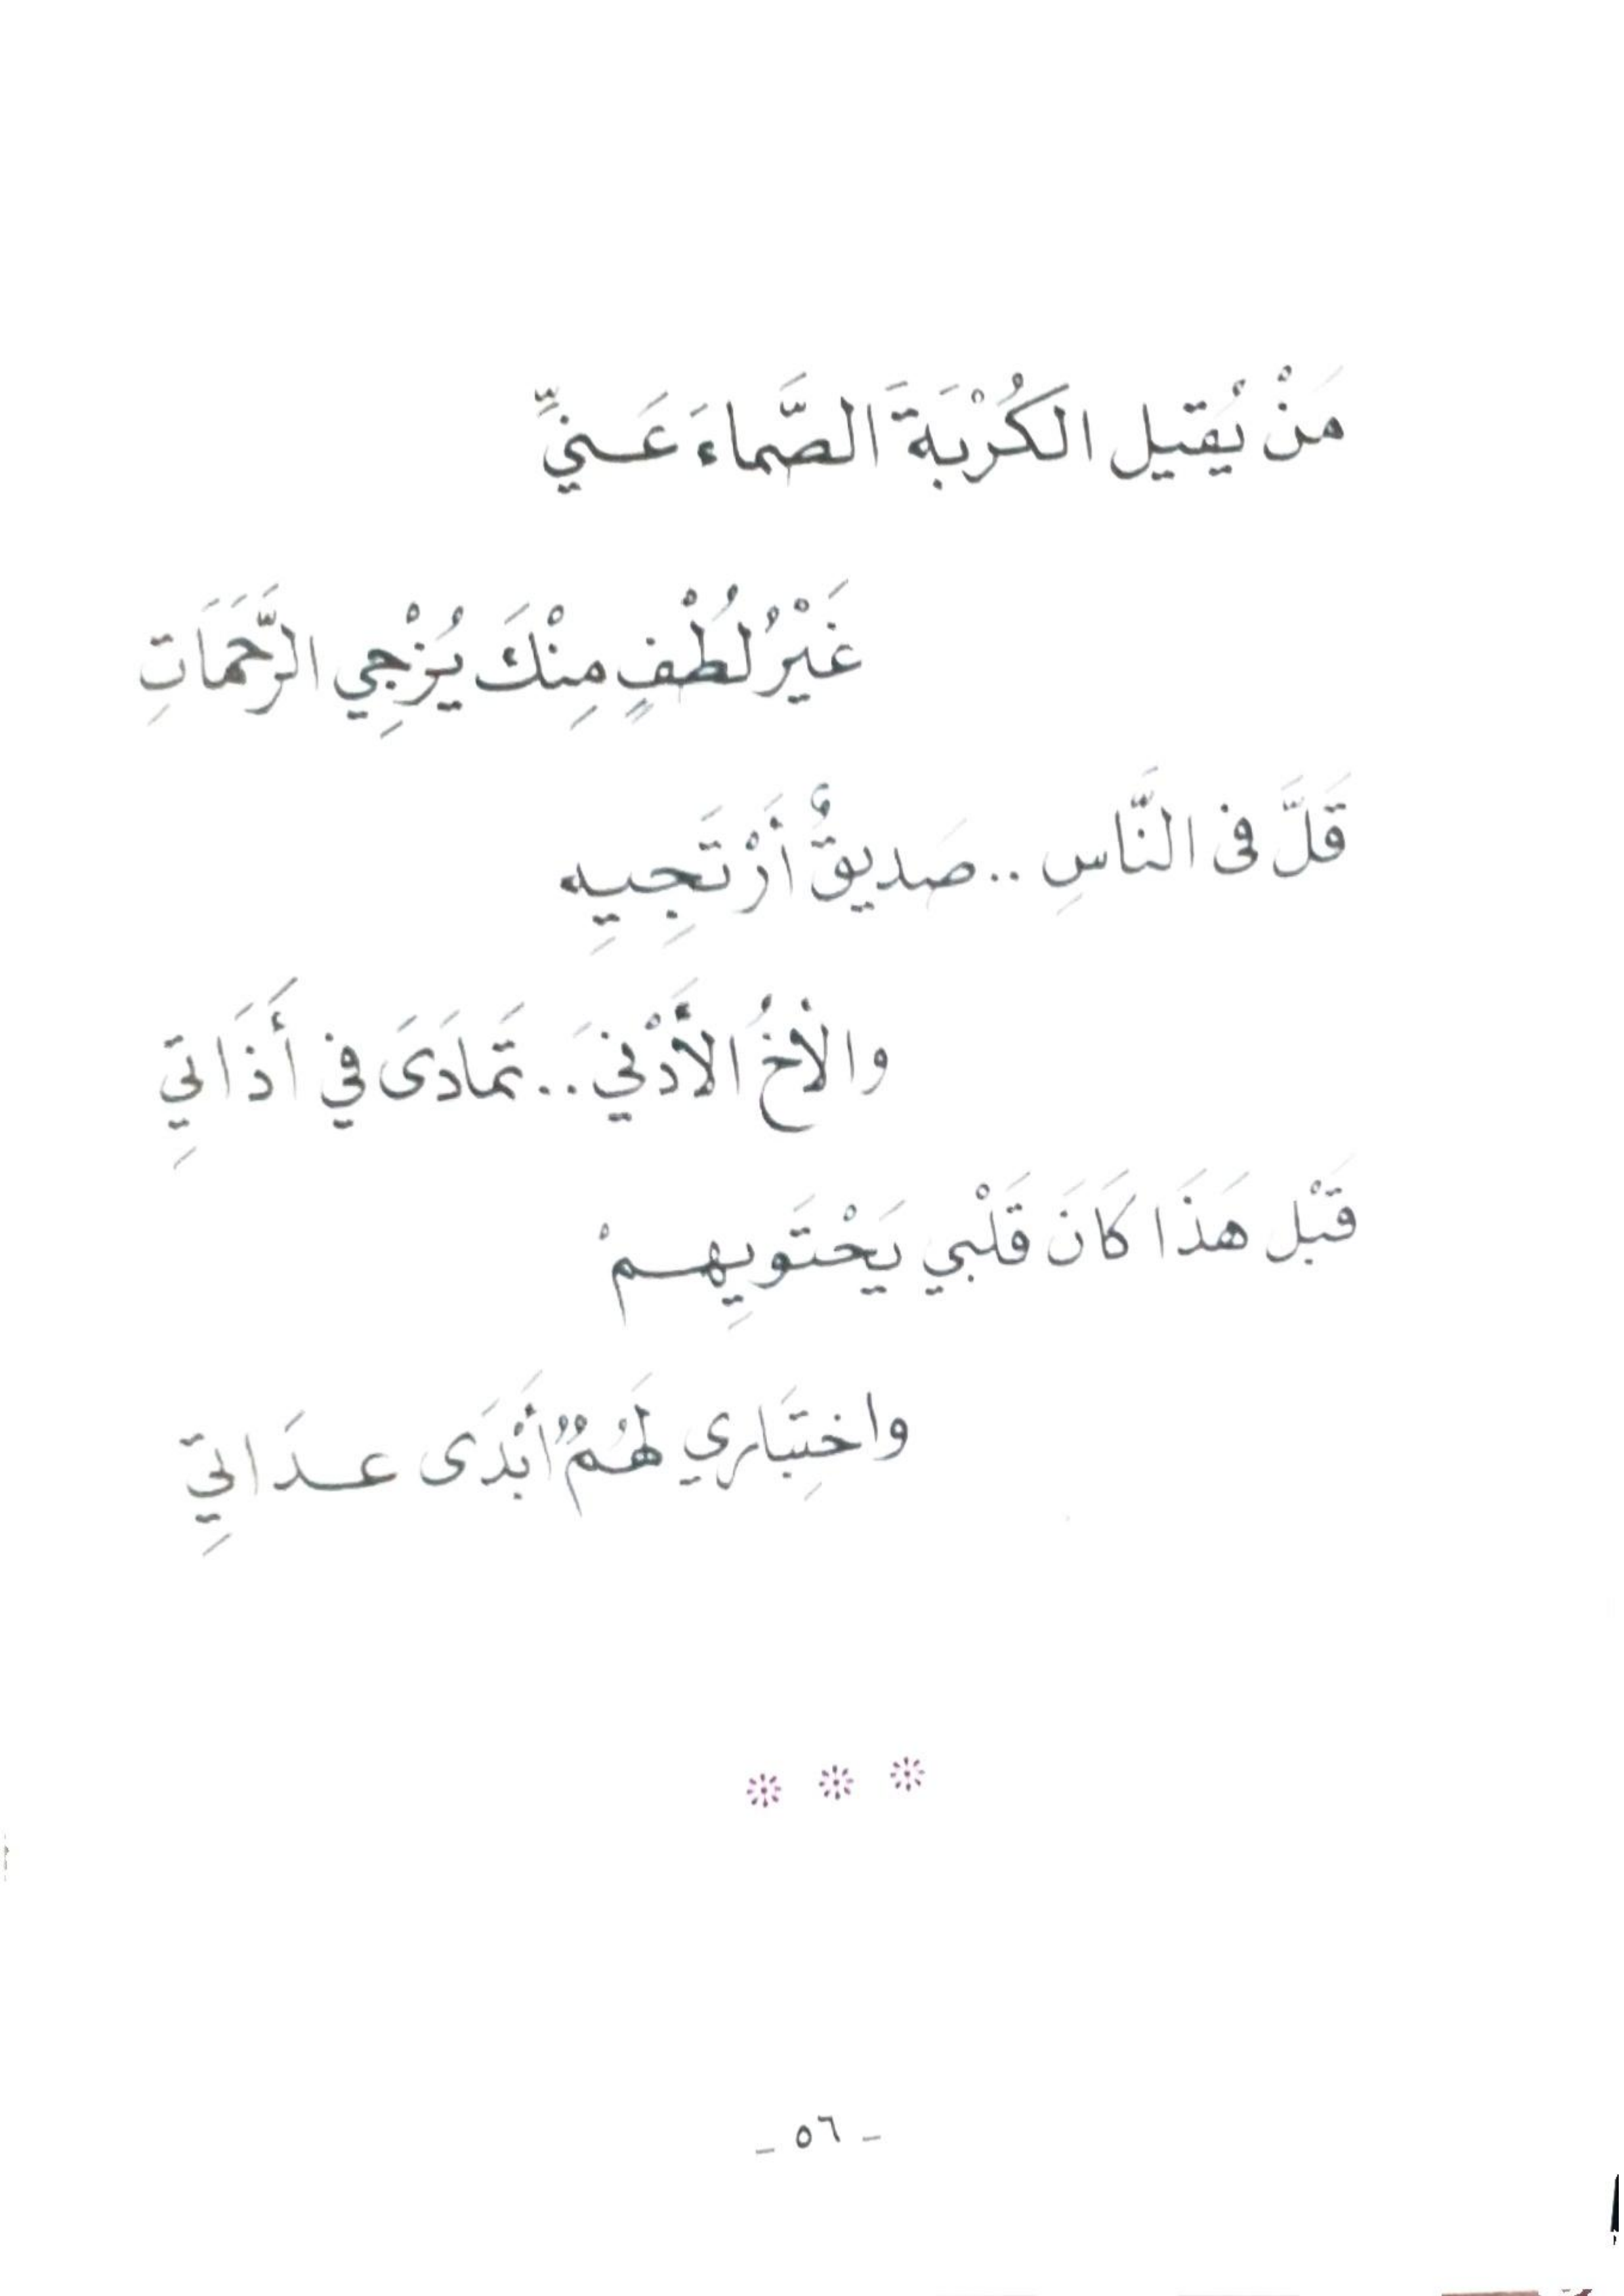 مَنْ يُقيل الكُرْبَةَ الصَّماءَ عَـنيِّ
غَيْرُ لُطْفٍ مِنْكَ يُزْجِي الرَّحَمَاتِ
قَلَّ فى النَّاسِ .. صَديقٌ أَرْتَجِيـهِ
والْأخُ الأَدْنيَ .. تَمَادَى في أَذَاتِي
قَبْل هَذَا كَانَ قَلْبي يَحْتَويِهـمْ
واختِبَاري لَهُمُ أَبْدَى عـدَاتِي
* * *
ـ ٥٦ ـ